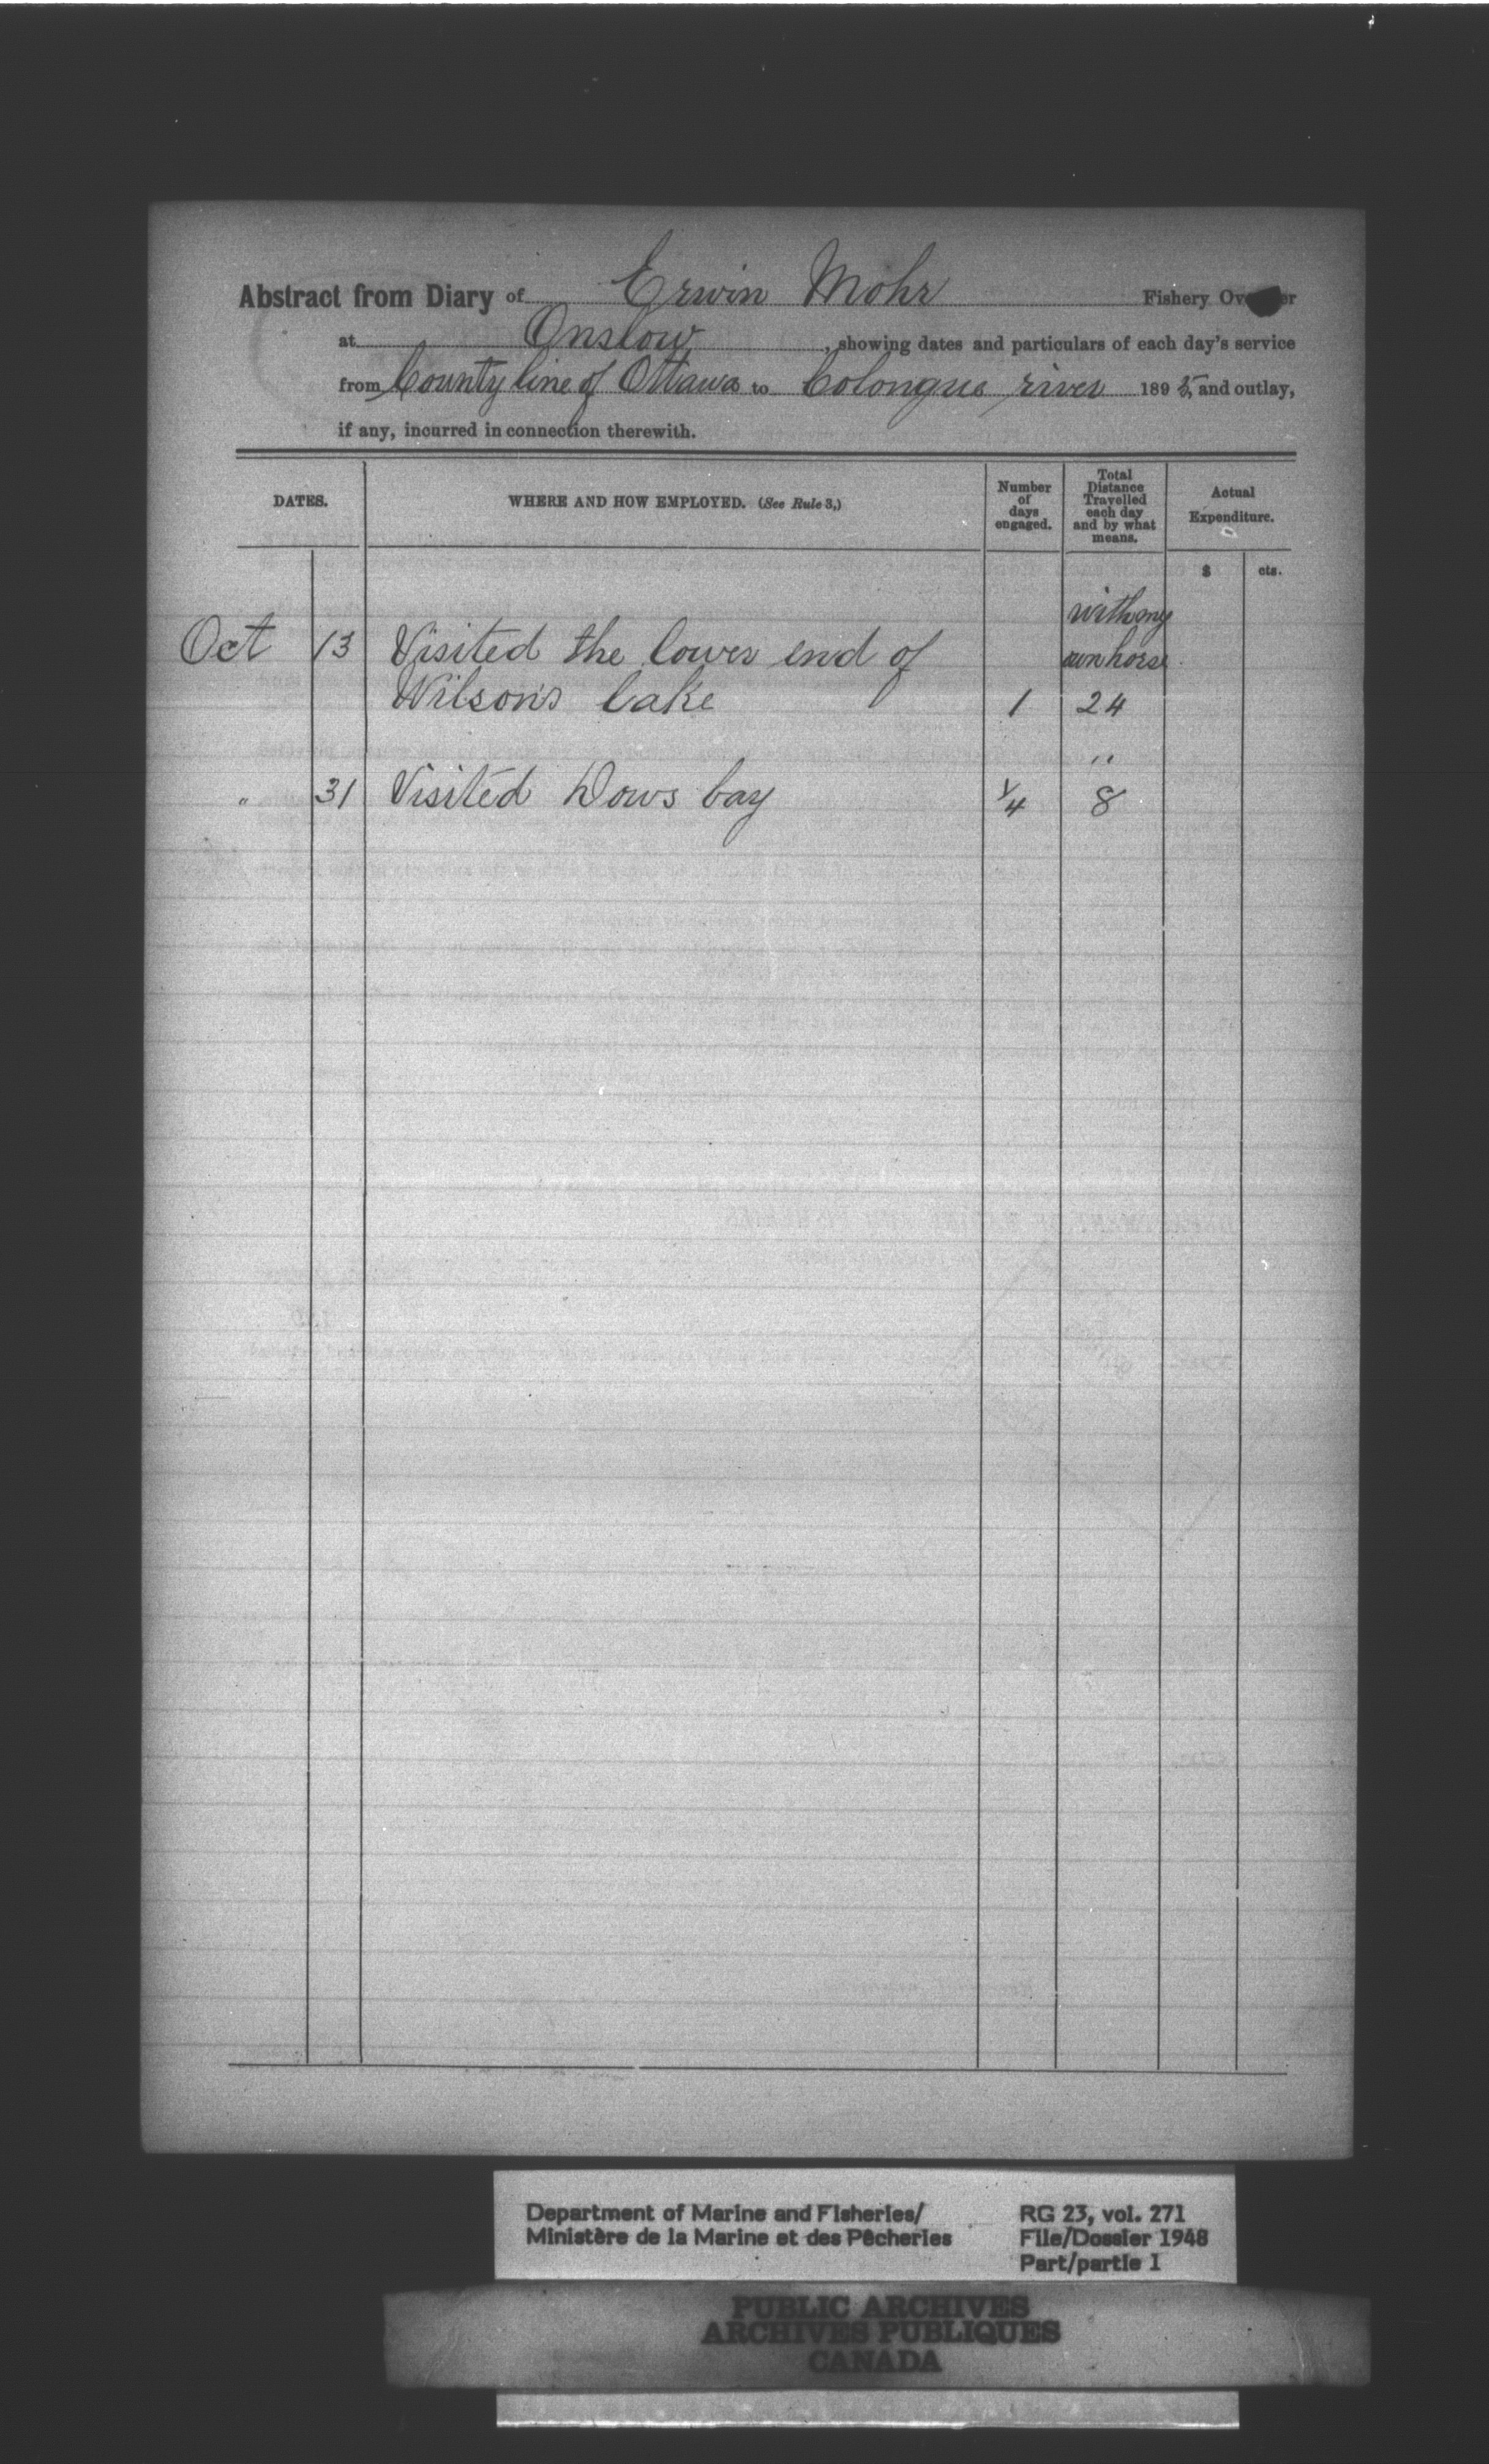 Abstract from Diary of Erwin Mohr Fishery Ov er
at Onslow, showing dates and particulars of each day's service
from County line of Ottawa to Colongue river 1895, and outlay,
if any, incurred in connection therewith.
DATES.
WHERE AND HOW EMPLOYED. (See Rule 3,)
Number
of
days
engaged.
Total
Distance
Travelled
each day
and by what
means.
Actual
Expenditure.
$ cts.
with my
Oct 13 Visited the lower end of own horse
Wilson's lake 1 24
"
" 31 Visited Dows bay 1/4 8
Department of Marine and Fisheries/
Ministère de la Marine et des Pêcheries
RG 23, vol. 271
File/Dossier 1948
Part/partie 1
PUBLIC ARCHIVES
ARCHIVES PUBLIQUES
CANADA